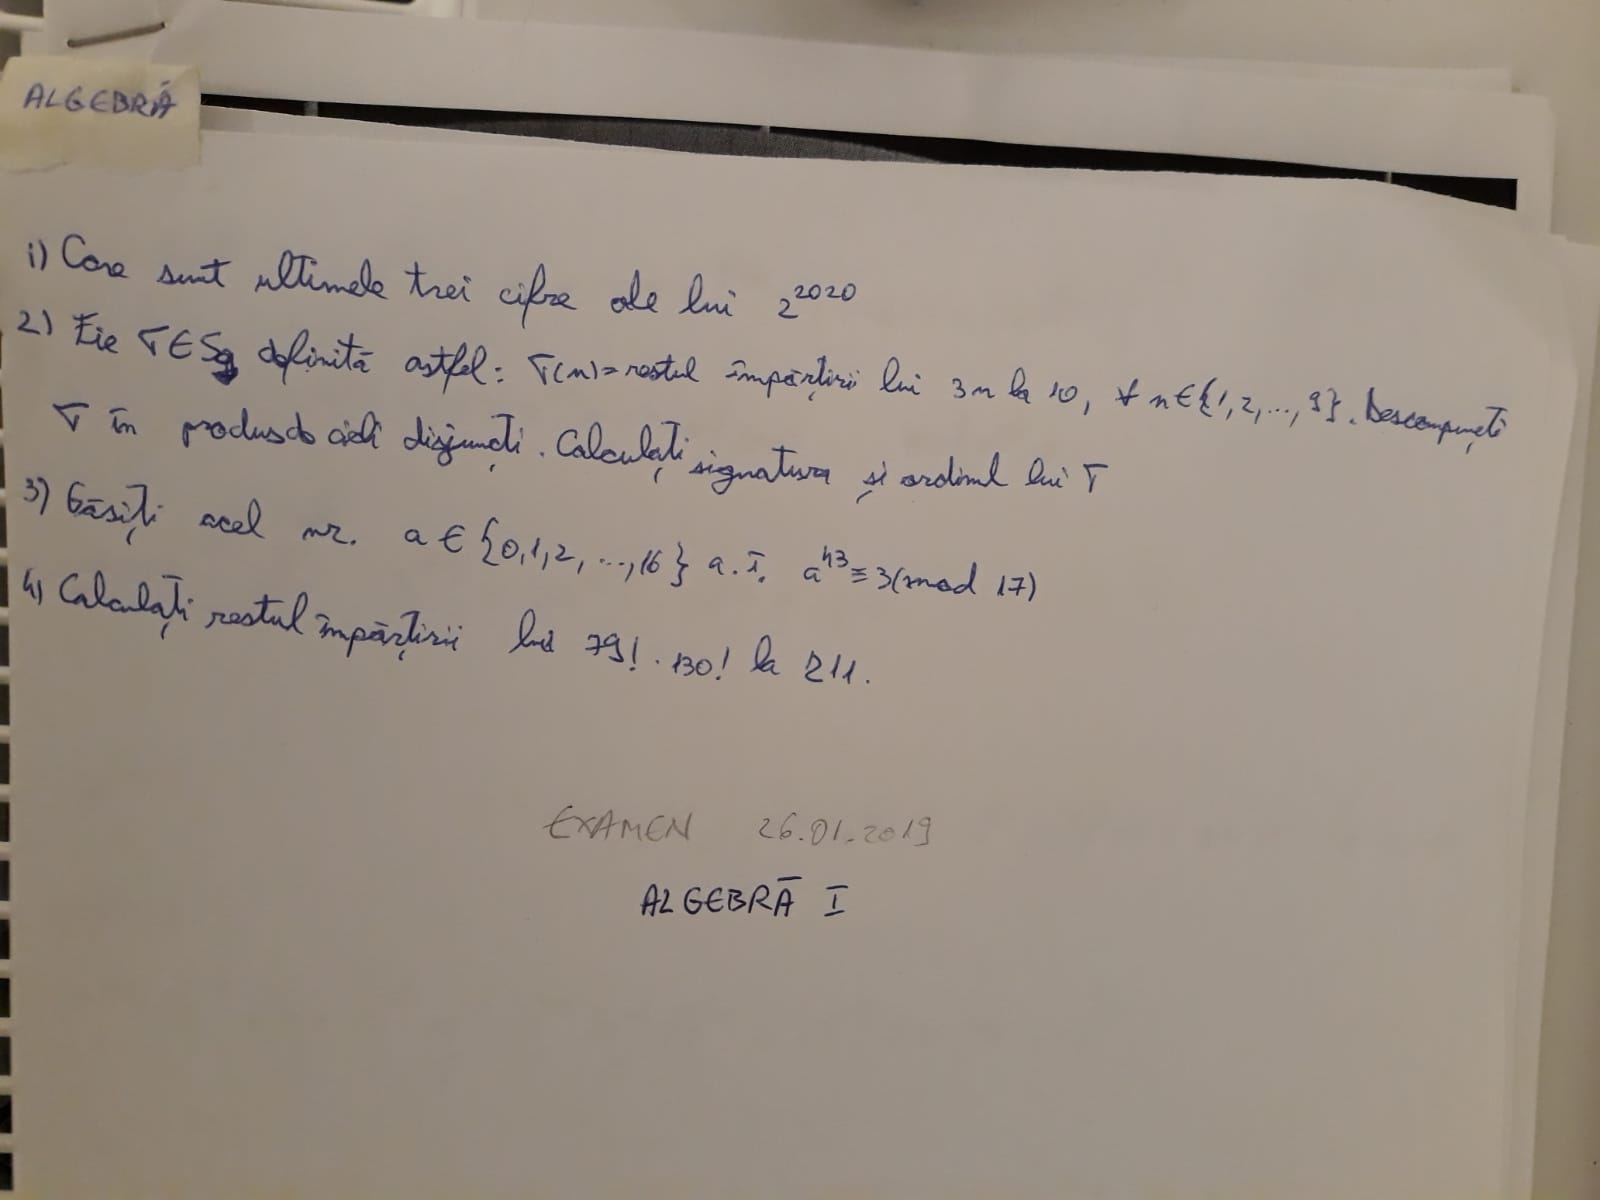 ALGEBRĂ
1) Care sunt ultimele trei cifre ale lui 2^2020
2) Fie σ∈S9 definită astfel: σ(n)=restul împărțirii lui 3n la 10, ∀ n∈{1,2,...,9}. Descompuneți
σ în produs de cicli disjuncți. Calculați signatura și ordinul lui σ
3) Găsiți acel nr. a ∈ {0,1,2,...,16} a.î. a^43 ≡ 3(mod 17)
4) Calculați restul împărțirii lui 79! · 130! la 211.
EXAMEN 26.01.2019
ALGEBRĂ I